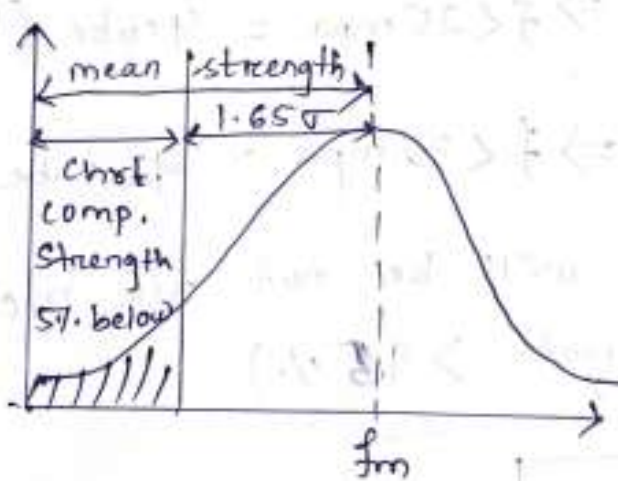 mean strength
1.65σ
Chrt.
comp.
Strength
5%. below
fm